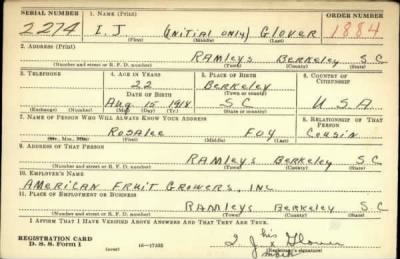 SERIAL NUMBER 1. NAME (Print) ORDER NUMBER
2274 I. J (INITIAL ONLY) GLOVER 1884
(First) (Middle) (Last)
2. ADDRESS (Print)
RAMLEYS BERKELEY S C
(Number and street or R. F. D. number) (Town) (County) (State)
3. TELEPHONE 4. AGE IN YEARS 5. PLACE OF BIRTH 6. COUNTRY OF CITIZENSHIP
22 BERKELEY
DATE OF BIRTH (Town or county)
Aug 15 1918 S C U S A
(Exchange) (Number) (Mo.) (Day) (Yr.) (State or country)
7. NAME OF PERSON WHO WILL ALWAYS KNOW YOUR ADDRESS 8. RELATIONSHIP OF THAT PERSON
ROSALEE FOY COUSIN
(Mr., Mrs., Miss) (First) (Middle) (Last)
9. ADDRESS OF THAT PERSON
RAMLEYS BERKELEY S C
(Number and street or R. F. D. number) (Town) (County) (State)
10. EMPLOYER'S NAME
AMERICAN FRUIT GROWERS, INC
11. PLACE OF EMPLOYMENT OR BUSINESS
RAMLEYS BERKELEY S C
(Number and street or R. F. D. number) (Town) (County) (State)
I AFFIRM THAT I HAVE VERIFIED ABOVE ANSWERS AND THAT THEY ARE TRUE.
REGISTRATION CARD his
D. S. S. FORM 1 (over) 16—17105 I J x Glover
mark
(Registrant's signature)